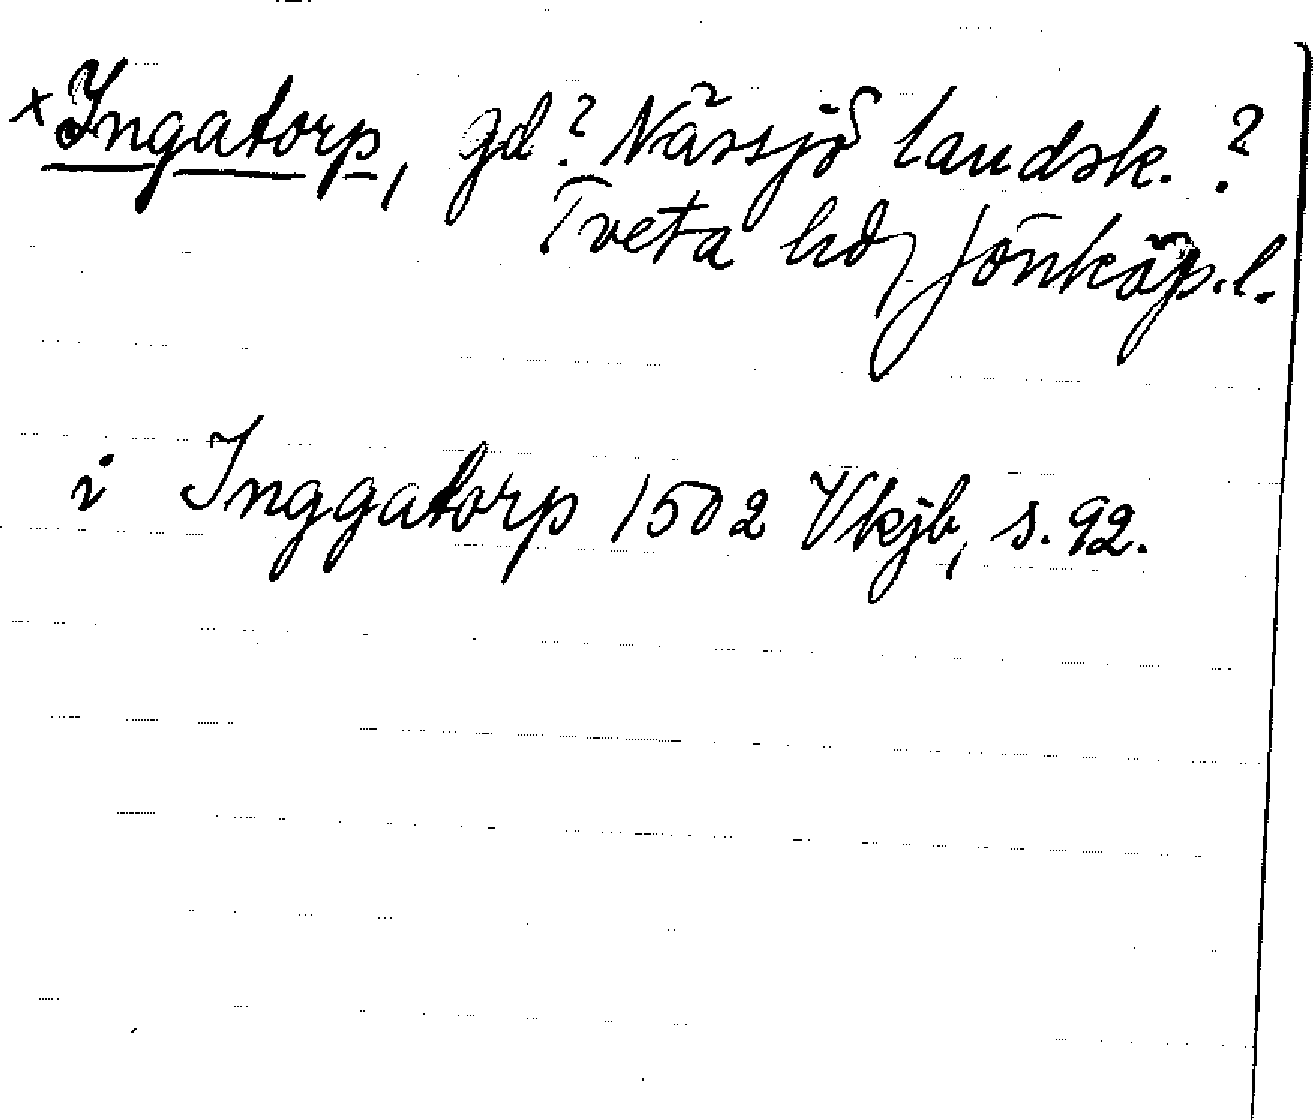 ×Ingatorp, gd? Nässjö landsk.?
Tveta hd, Jönköp.l.
i Inggatorp 1502 Vkjb, s. 92.